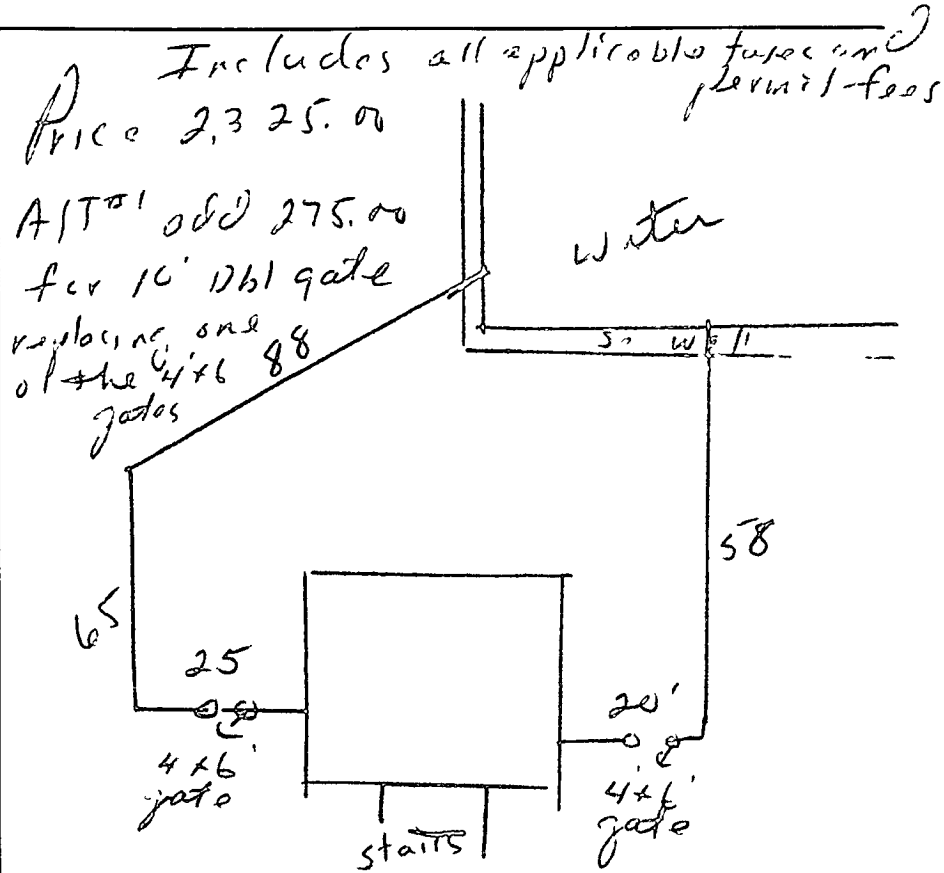 Includes all applicable taxes and
permit fees
Price 2,325.00
Alt #1 add 275.00
for 10' Dbl gate
replacing one
of the 4'x6'
gates
88
water
58
65
25
20'
4x6'
gate
4'x6'
gate
stairs